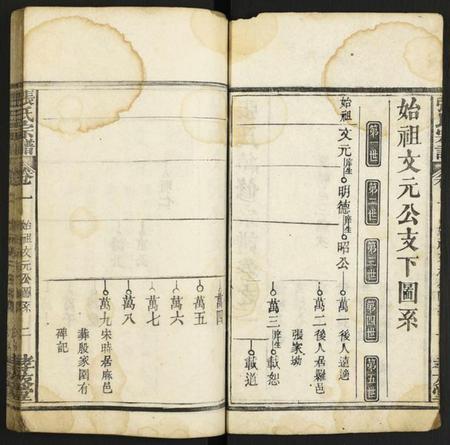 始祖文元公支下圖系
第一世
第二世
第三世
第四世
第五世
始祖文元
生
明德
生
昭公
萬一
後人遠適
萬二
後人居羅邑
張家坳
萬三
生
載恕
載道
萬四
萬五
萬六
萬七
萬八
萬九
宋時居麻邑
葬殷家園有
碑記
張氏宗譜
卷一
始祖文元公圖系
二
孝友堂